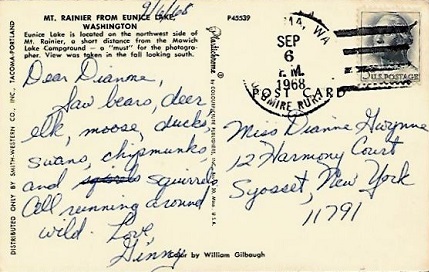 MT. RAINIER FROM EUNICE LAKE,
WASHINGTON
Eunice Lake is located on the northwest side of
Mt. Rainier, a short distance from the Mowich
Lake Campground — a "must" for the photogra-
pher. View was taken in the fall looking south.
9/6/68
P45539
Dear Dianne,
Saw bears, deer
elk, moose, ducks,
swans, chipmunks,
and squirrels
All running around
wild. Love
Ginny
DISTRIBUTED ONLY BY SMITH-WESTERN CO., INC. TACOMA-PORTLAND
Plastichrome
WA
SEP
6
P.M.
1968
POST CARD
U.S. POSTAGE
Miss Dianne Gwynne
12 Harmony Court
Syosset, New York
11791
Color by William Gilbaugh